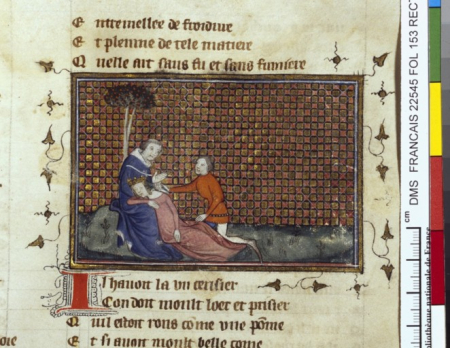 E ntremellee de froidure
E t plenne de tele matiere
Q uelle art sans fu et sans fumiere
I l havoit la vn cerisier
Con doit moult loer et prisier
Q uil estoit rons come vne pome
E t si avoit moult belle come
DMS FRANCAIS 22545 FOL 153 RECT
cm
bliothèque nationale de France